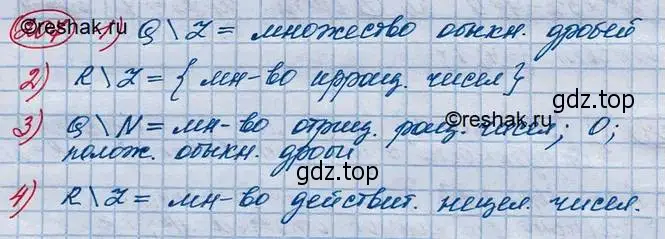 ©reshak.ru 1) Q \ Z = множество обыкн. дробей
2) R \ Z = { мн-во иррац. чисел}
©reshak.ru
gdz.top
3) Q \ N = мн-во отриц. рац. чисел; 0;
полож. обыкн. дроби
gdz.top
4) R \ Z = мн-во действит. нецел. чисел.